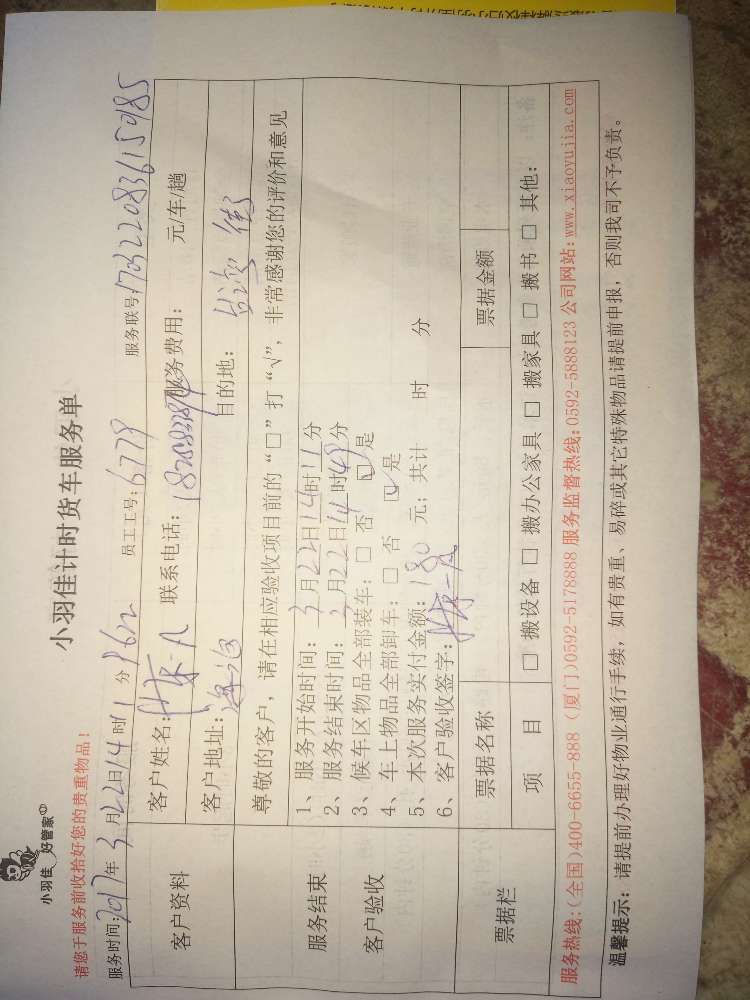 小羽佳 好管家
小羽佳计时货车服务单
请您于服务前收拾好您的贵重物品!
服务时间:2017年3月22日14时11分 9622 员工工号:6779 服务联号:1703220836159985
客户资料
客户姓名: 联系电话: 服务费用: 元/车/趟
客户地址: 目的地:
服务结束
客户验收
尊敬的客户,请在相应验收项目前的“□”打“√”,非常感谢您的评价和意见
1、服务开始时间:3月22日14时11分
2、服务结束时间:3月22日14时49分
3、候车区物品全部装车:□ 否 ☑是
4、车上物品全部卸车:□ 否 ☑是
5、本次服务实付金额:180 元;共计 时 分
6、客户验收签字:
票据栏
票据名称 票据金额
项 目 □ 搬设备 □ 搬办公家具 □ 搬家具 □ 搬书 □ 其他:
服务热线:(全国)400-6655-888 (厦门)0592-5178888 服务监督热线:0592-5888123 公司网站:www.xiaoyujia.com
温馨提示:请提前办理好物业通行手续,如有贵重、易碎或其它特殊物品请提前申报,否则我司不予负责。